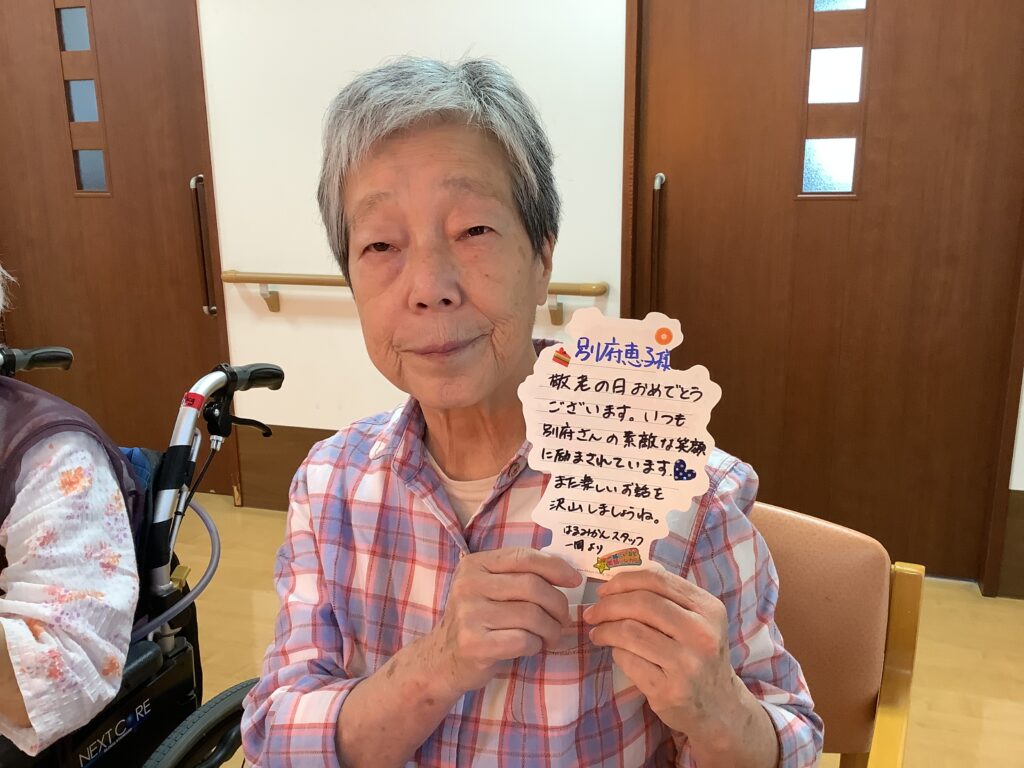 別府恵子様
敬老の日おめでとう
ございます。いつも
別府さんの素敵な笑顔
に励まされています。
また楽しいお話を
沢山しましょうね。
はるみかんスタッフ
一同より
NEXT CORE